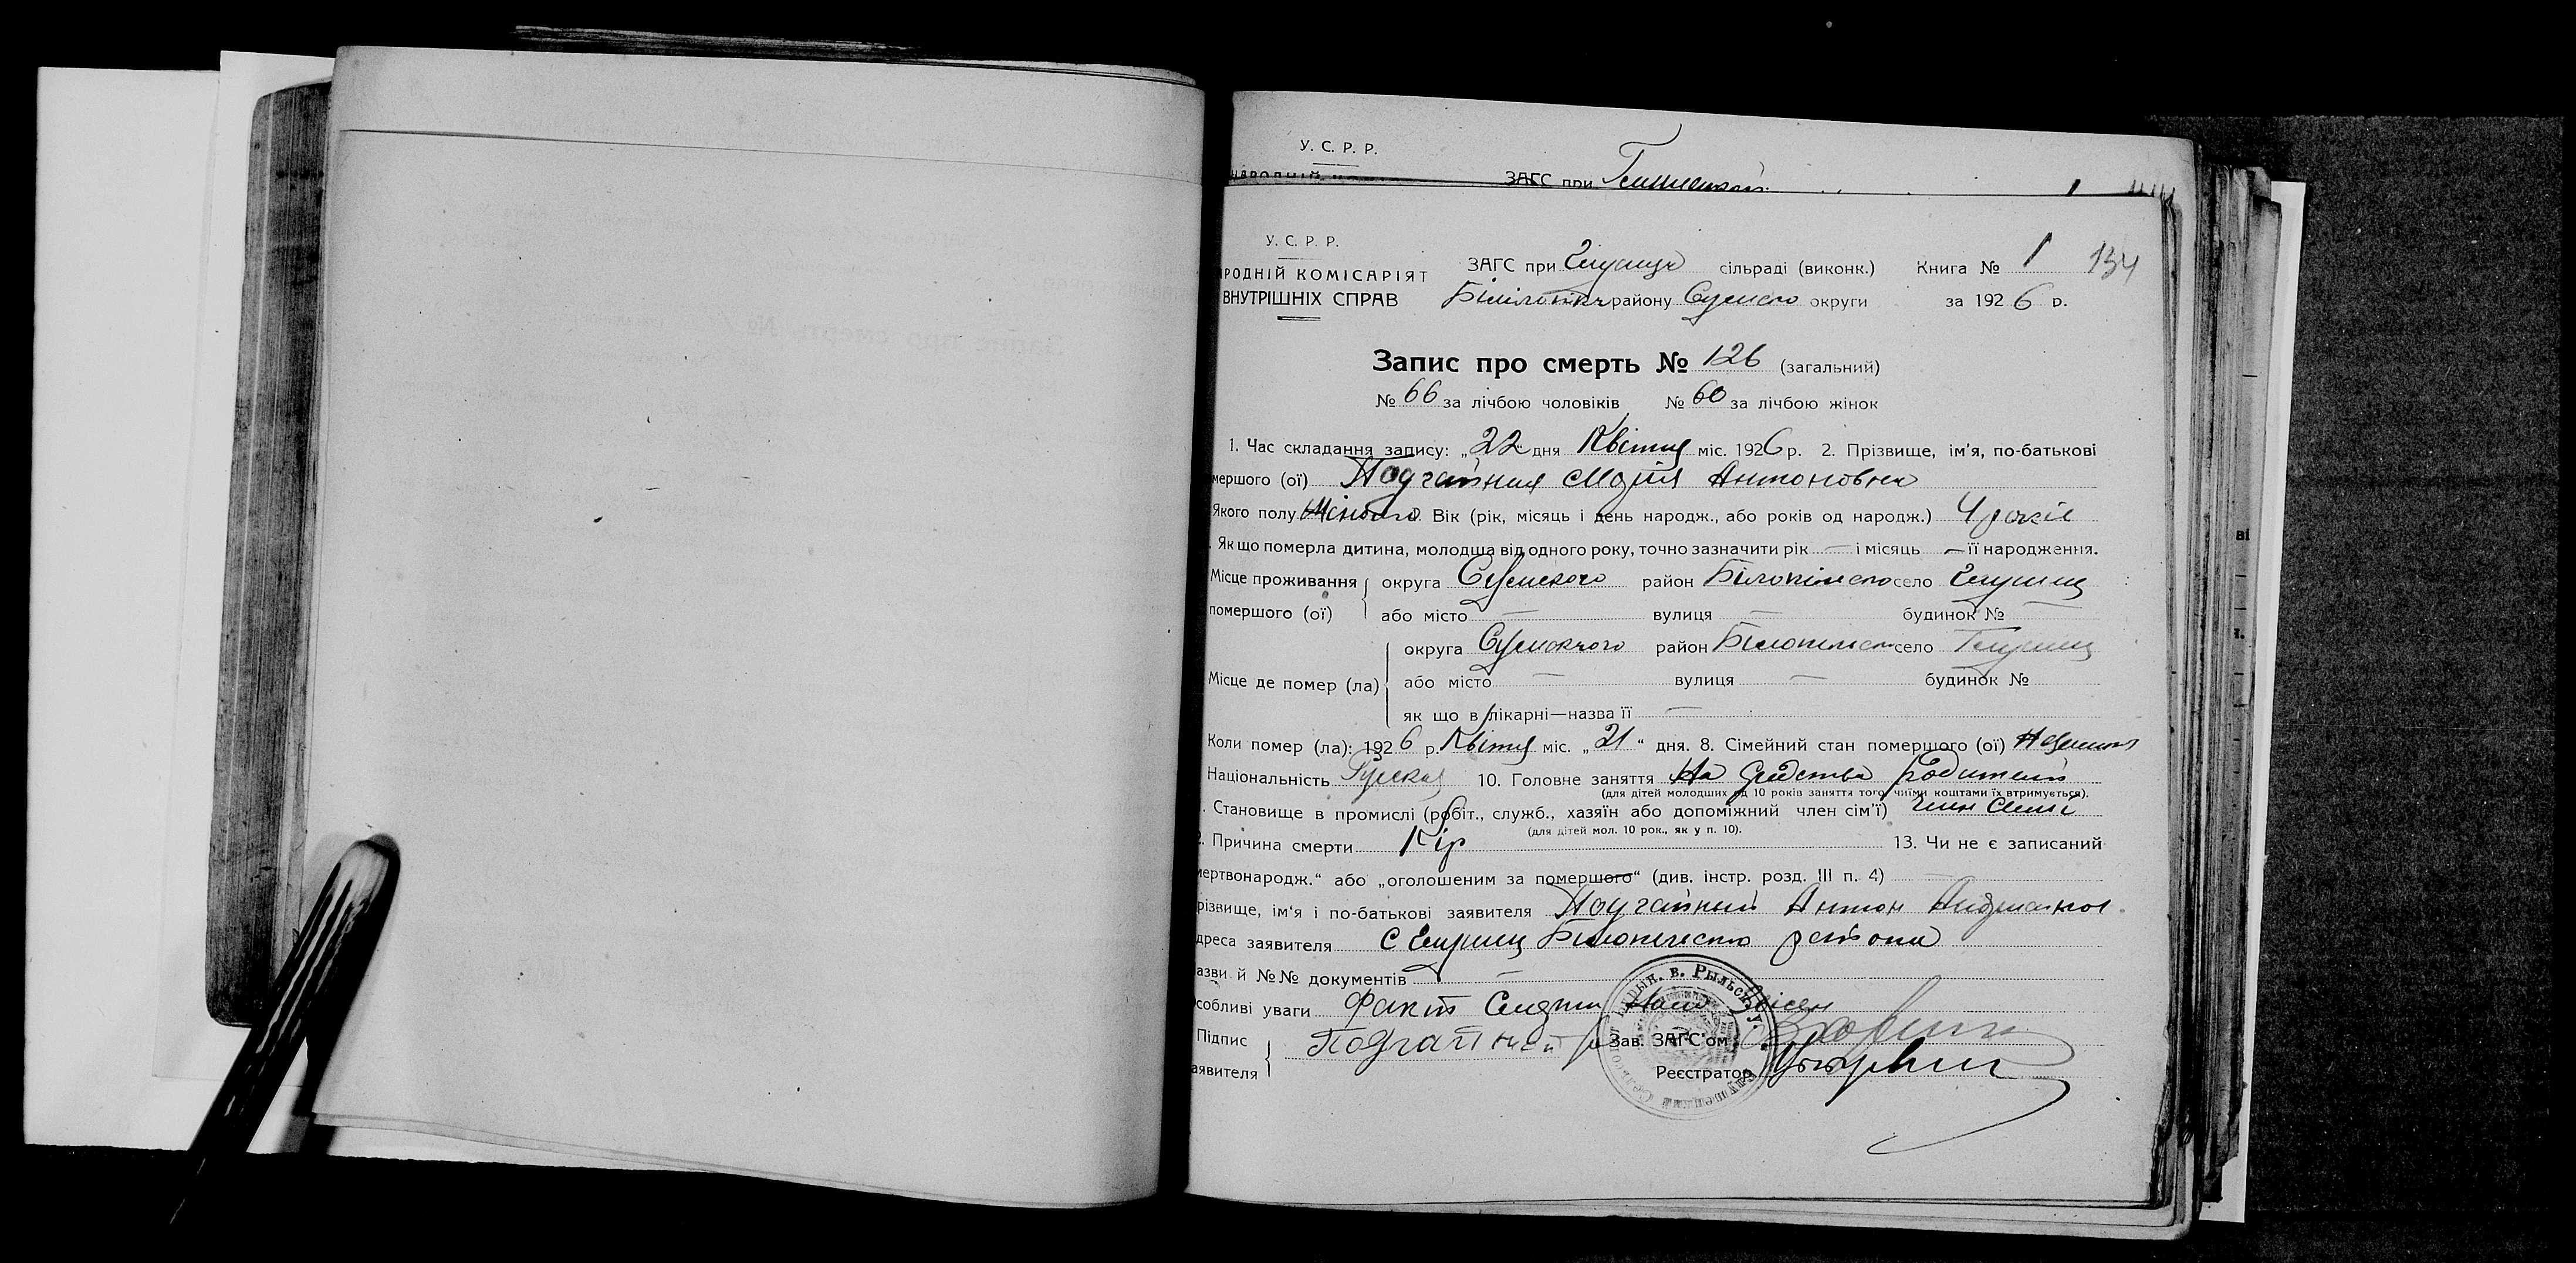 У. С. Р. Р.
ЗАГС при
У. С. Р. Р.
РОДНІЙ КОМІСАРІЯТ
ВНУТРІШНІХ СПРАВ
ЗАГС при сільраді (виконк.) Книга № 1 134
району округи за 1926 р.
Запис про смерть № 126 (загальний)
№ 66 за лічбою чоловіків № 60 за лічбою жінок
1. Час складання запису: „22 дня Квітня міс. 1926 р. 2. Прізвище, ім'я, по-батькові
мершого (ої) Подгайная Марія Антоновна
Якого полу Жіночого Вік (рік, місяць і день народж., або років од народж.) 4 років
. Як що померла дитина, молодша від одного року, точно зазначити рік — і місяць — її народження.
Місце проживання помершого (ої) округа Сумского район село
або місто — вулиця — будинок № —
Місце де помер (ла) округа Сумского район село
або місто — вулиця — будинок №
як що в лікарні—назва її —
Коли помер (ла): 1926 р. Квітня міс. „21“ дня. 8. Сімейний стан помершого (ої)
Національність Руская 10. Головне заняття На средства родителей
(для дітей молодших од 10 років заняття того, чиїми коштами їх втримується).
. Становище в промислі (робіт., служб., хазяїн або допоміжний член сім'ї) член семьи
(для дітей мол. 10 рок., як у п. 10).
2. Причина смерти Кір 13. Чи не є записаний
мертвонародж.“ або „оголошеним за помершого“ (див. інстр. розд. III п. 4)
різвище, ім'я і по-батькові заявителя Подгайний Антон
дреса заявителя С района
азви й №№ документів —
собливі уваги Факт
Підпис аявителя Подгайней
Зав. ЗАГС'ом
Реєстратор